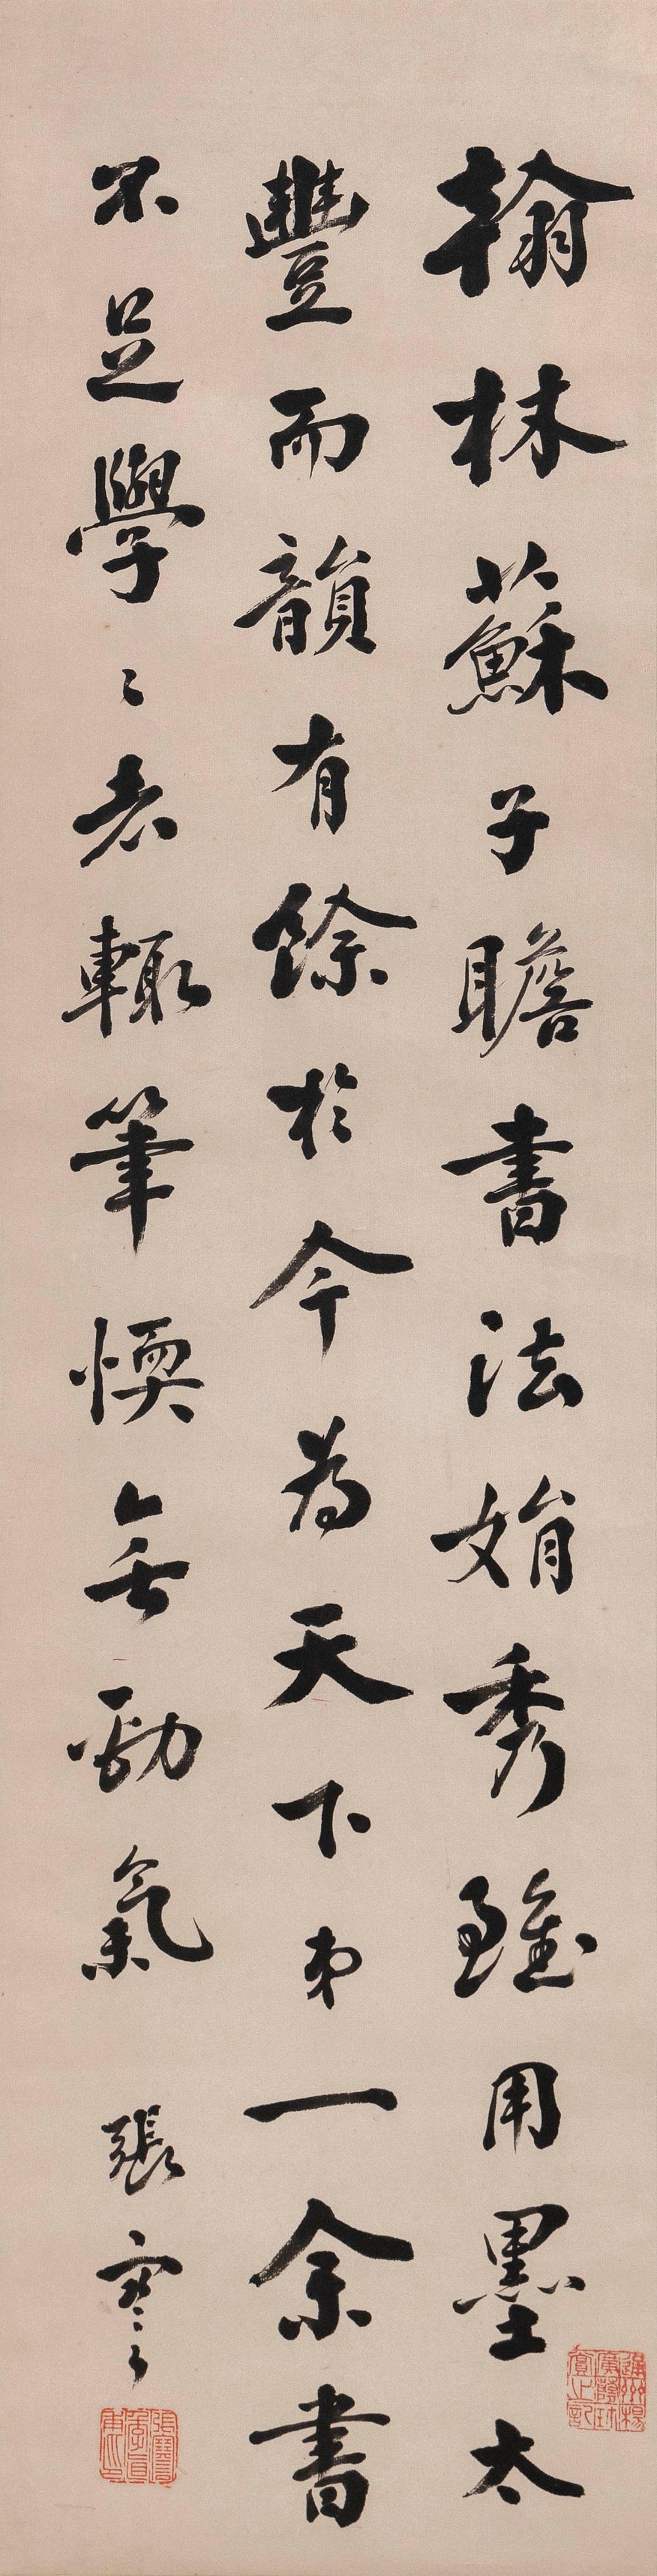 翰林蘇子瞻書法娟秀雖用墨太
豐而韻有餘於今為天下弟一余書
不足學〻者輙筆愞無勁氣 張謇